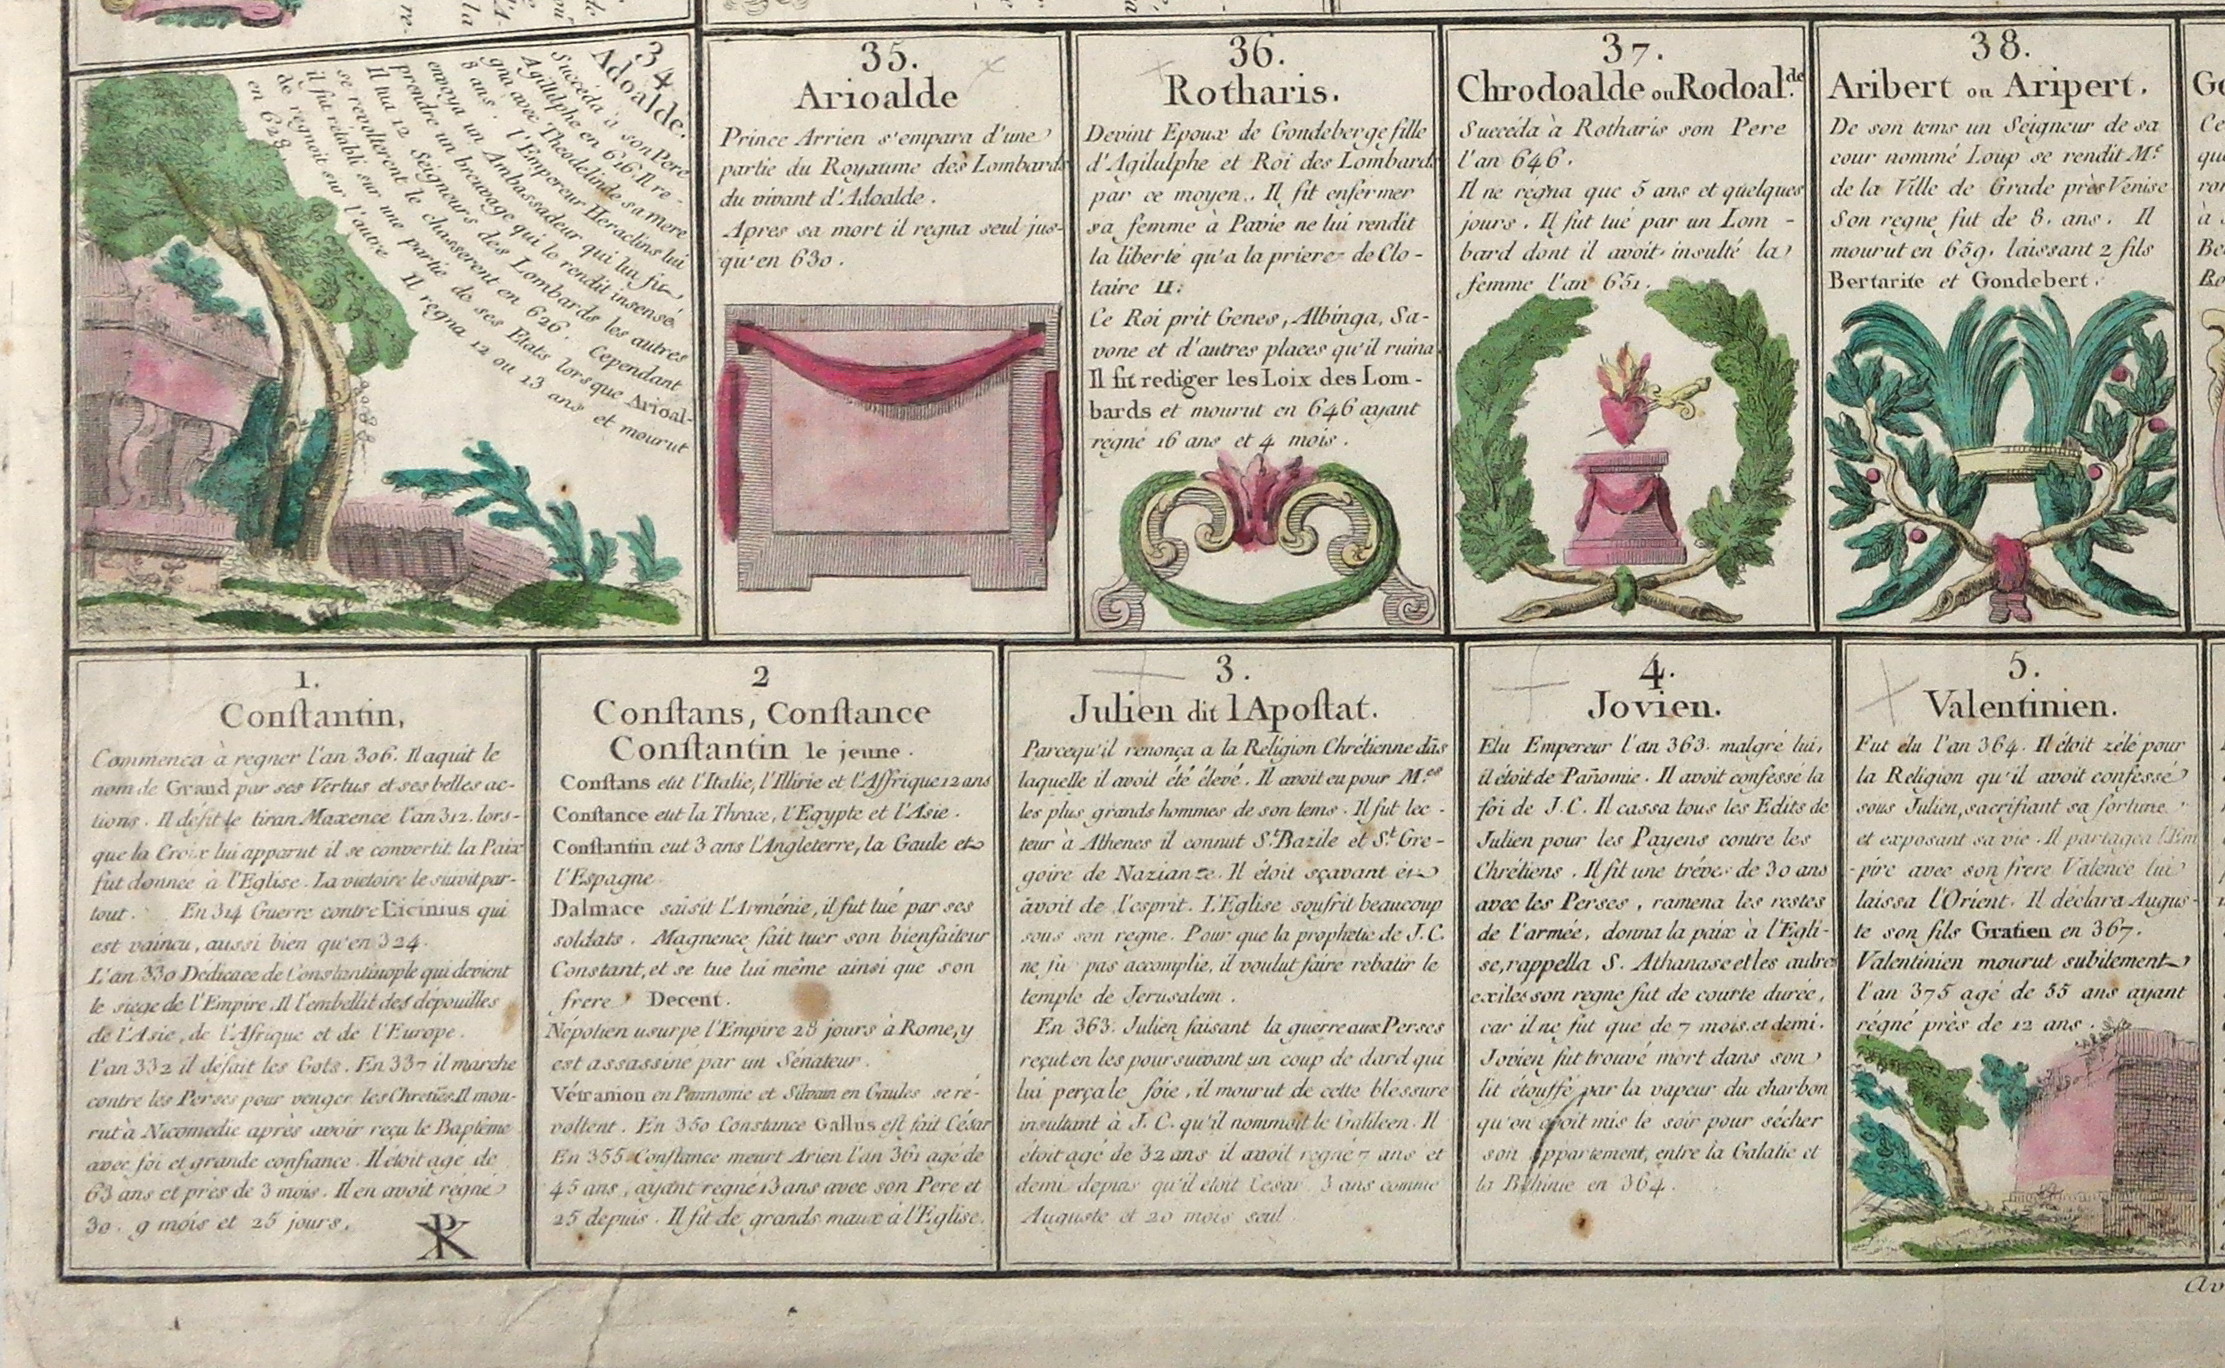 34
Adoalde.
Succéda à son Pere
Agilulphe en 616. Il re-
gna avec Theodelinde sa mere
8 ans. l'Empereur Heraclius lui
envoya un Ambassadeur qui lui fit
prendre un breuvage qui le rendit insensé
Il tua 12 Seigneurs des Lombards les autres
se revolterent le chasserent en 626. Cependant
il fut rétabli sur une partie de ses Etats lorsque Arioal-
de regnoit sur l'autre Il regna 12 ou 13 ans et mourut
en 628.
35.
Arioalde
Prince Arrien s'empara d'une
partie du Royaume des Lombards
du vivant d'Adoalde.
Apres sa mort il regna seul jus-
qu'en 630.
36.
Rotharis.
Devint Epoux de Gondeberge fille
d'Agilulphe et Roi des Lombards
par ce moyen. Il fit enfermer
sa femme à Pavie ne lui rendit
la liberté qu'a la priere de Clo-
taire II:
Ce Roi prit Genes, Albinga, Sa-
vone et d'autres places qu'il ruina
Il fit rediger les Loix des Lom-
bards et mourut en 646 ayant
régné 16 ans et 4 mois.
37.
Chrodoalde ou Rodoal.de
Succéda à Rotharis son Pere
l'an 646.
Il ne regna que 5 ans et quelques
jours. Il fut tué par un Lom-
bard dont il avoit insulté la
femme l'an 651.
38.
Aribert ou Aripert.
De son tems un Seigneur de sa
cour nommé Loup se rendit M.e
de la Ville de Grade près Venise
Son regne fut de 8. ans. Il
mourut en 659. laissant 2 fils
Bertarite et Gondebert.
1.
Conſtantin,
Commença à regner l'an 306. Il aquit le
nom de Grand par ses Vertus et ses belles ac-
tions. Il défit le tiran Maxence l'an 312. lors-
que la Croix lui apparut il se convertit la Paix
fut donnée à l'Eglise. La victoire le suivit par-
tout. En 314 Guerre contre Licinius qui
est vaincu, aussi bien qu'en 324.
L'an 330 Dedicace de Constantinople qui devient
le siege de l'Empire. Il l'embellit des dépouilles
de l'Asie, de l'Afrique et de l'Europe.
l'an 332 il défait les Gots. En 337 il marche
contre les Perses pour venger les Chretiẽs. Il mou-
rut à Nicomedie après avoir reçu le Baptême
avec foi et grande confiance. Il étoit age de
63 ans et près de 3 mois. Il en avoit regné
30. 9 mois et 25 jours.
2
Conſtans, Conſtance
Conſtantin le jeune.
Conſtans eut l'Italie, l'Illirie et l'Affrique 12 ans
Conſtance eut la Thrace, l'Egypte et l'Asie.
Conſtantin eut 3 ans l'Angleterre, la Gaule et
l'Espagne
Dalmace saisit l'Arménie, il fut tué par ses
soldats. Magnence fait tuer son bienfaiteur
Constant, et se tue lui même ainsi que son
frere Decent.
Népotien usurpe l'Empire 28 jours à Rome, y
est assassiné par un Sénateur.
Vétranion en Pannonie et Silvain en Gaules se ré-
voltent. En 350 Constance Gallus eſt fait César
En 355 Conſtance meurt Arien l'an 361 agé de
45 ans, ayant regné 13 ans avec son Pere et
25 depuis. Il fit de grands maux à l'Eglise.
3.
Julien dit l Apoſtat.
Parcequ'il renonça a la Religion Chrétienne dãs
laquelle il avoit été élevé. Il avoit eu pour M.es
les plus grands hommes de son tems. Il fut lec-
teur à Athenes il connut S.t Bazile et S.t Gre-
goire de Nazianze. Il étoit sçavant et
avoit de l'esprit. L'Eglise soufrit beaucoup
sous son regne. Pour que la prophetie de J.C.
ne fut pas accomplie, il voulut faire rebatir le
temple de Jerusalem.
En 363. Julien faisant la guerre aux Perses
reçut en les poursuivant un coup de dard qui
lui perça le foie, il mourut de cette blessure
insultant à J.C. qu'il nommoit le Galileen. Il
étoit agé de 32 ans il avoit regné 7 ans et
demi depuis qu'il etoit Cesar 3 ans comme
Auguste et 20 mois seul.
4.
Jovien.
Elu Empereur l'an 363. malgré lui,
il étoit de Pañomie. Il avoit confessé la
foi de J.C. Il cassa tous les Edits de
Julien pour les Payens contre les
Chrétiens. Il fit une tréve de 30 ans
avec les Perses, ramena les restes
de l'armée, donna la paix à l'Egli-
se, rappella S. Athanase et les autres
exilés son regne fut de courte durée,
car il ne fut que de 7 mois et demi.
Jovien fut trouvé mort dans son
lit étouffé par la vapeur du charbon
qu'on avoit mis le soir pour sécher
son appartement, entre la Galatie et
la Bithinie en 364.
5.
Valentinien.
Fut élu l'an 364. Il étoit zélé pour
la Religion qu'il avoit confessé
sous Julien, sacrifiant sa fortune
et exposant sa vie. Il partagea l'Em
-pire avec son frere Valence lui
laissa l'Orient. Il déclara Augus-
te son fils Gratien en 367.
Valentinien mourut subitement
l'an 375 agé de 55 ans ayant
régné près de 12 ans.